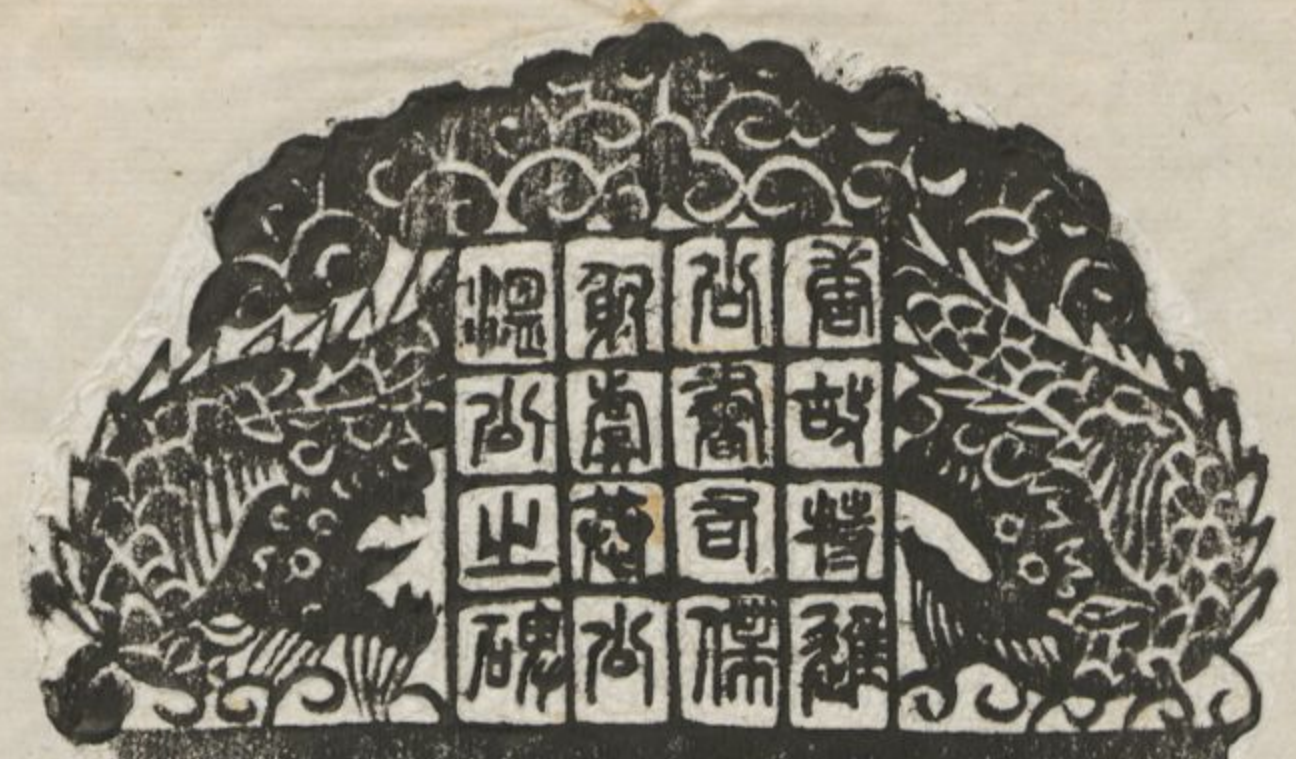 唐故特進
尚書右僕
射虞恭公
溫公之碑